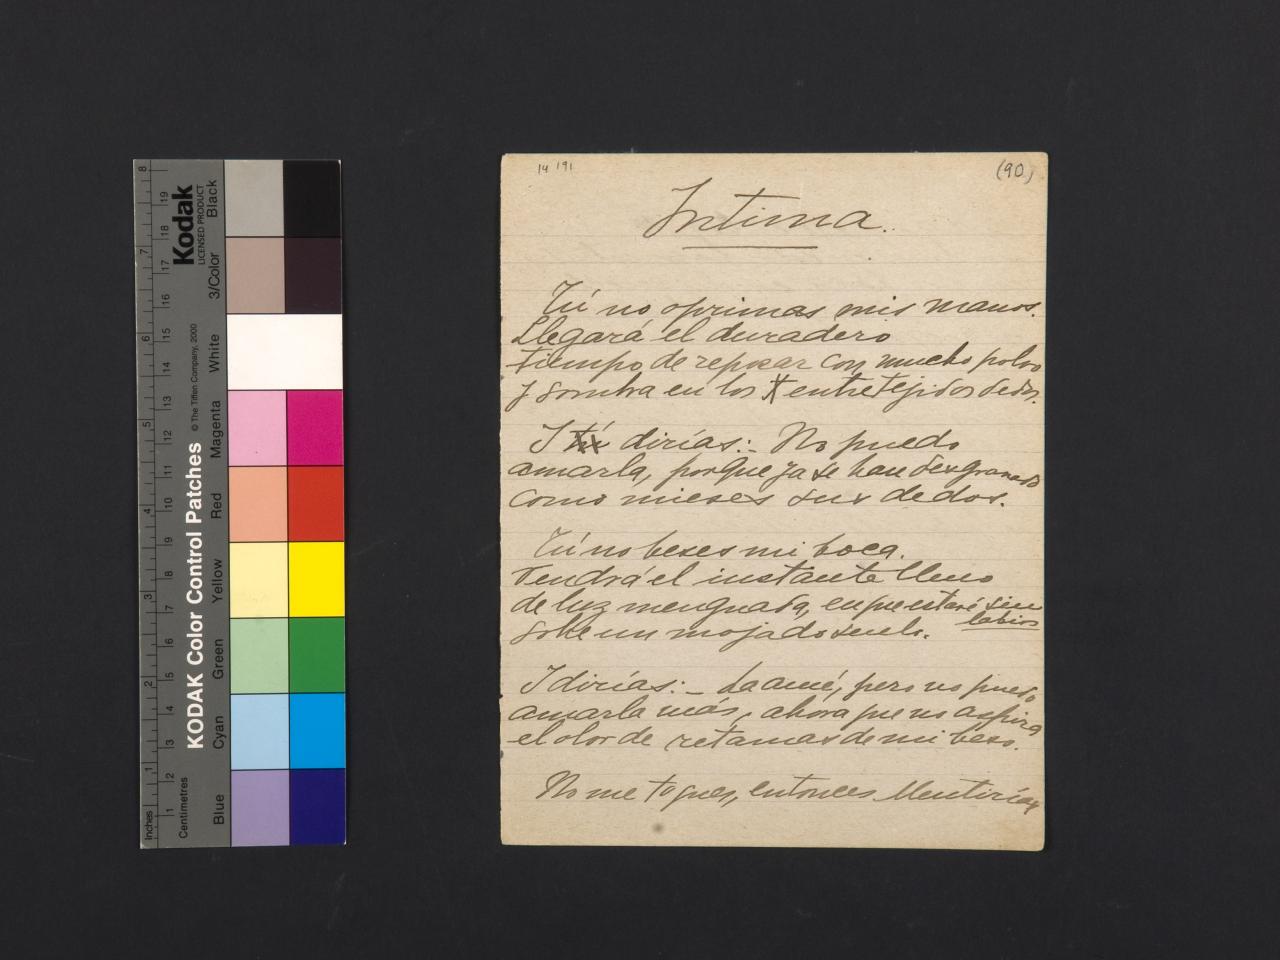 14 191
(90)
Intima.
Tú no oprimas mis manos.
Llegará el duradero
tiempo de reposar con mucho polvo
y sombra en los entretejidos dedos.
I dirías:- No puedo
amarla, porque ya se han desgranado
como mieses sus dedos.
Tú no beses mi boca.
Vendrá el instante lleno
de luz menguada, en que estaré sin
labios
sobre un mojado suelo.
I dirías:- La amé, pero no puedo
amarla más, ahora que no aspira
el olor de retamas de mi beso.
No me toques, entonces. Mentirías
KODAK Color Control Patches
© The Tiffen Company, 2000
Kodak
LICENSED PRODUCT
Inches
1 2 3 4 5 6 7 8
Centimetres
1 2 3 4 5 6 7 8 9 10 11 12 13 14 15 16 17 18 19
Blue
Cyan
Green
Yellow
Red
Magenta
White
3/Color
Black